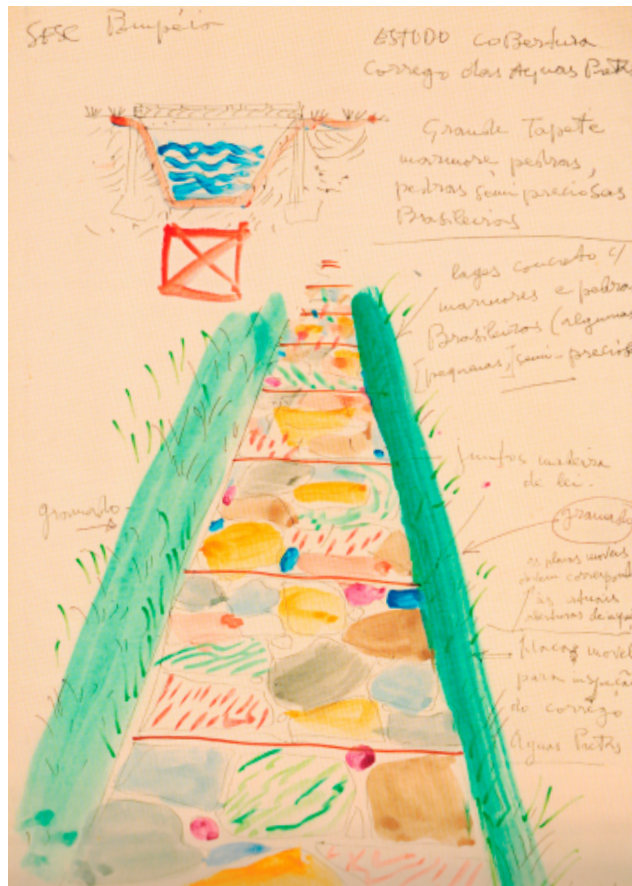 SESC Pompéia
ESTUDO CoBertura
Corrego das Aguas Preta
Grande Tapete
marmore pedras,
pedras semi preciosas
Brasileiras
lages concreto c/
marmores e pedra
Brasileiras (algumas
[pequenas,] semi-precios
juntas madeira
de lei -
gramado
gramado
as placas moveis
devem correspond
às atuais
aberturas de agua
placas movei
para inspeção
do corrego
Aguas Pretas